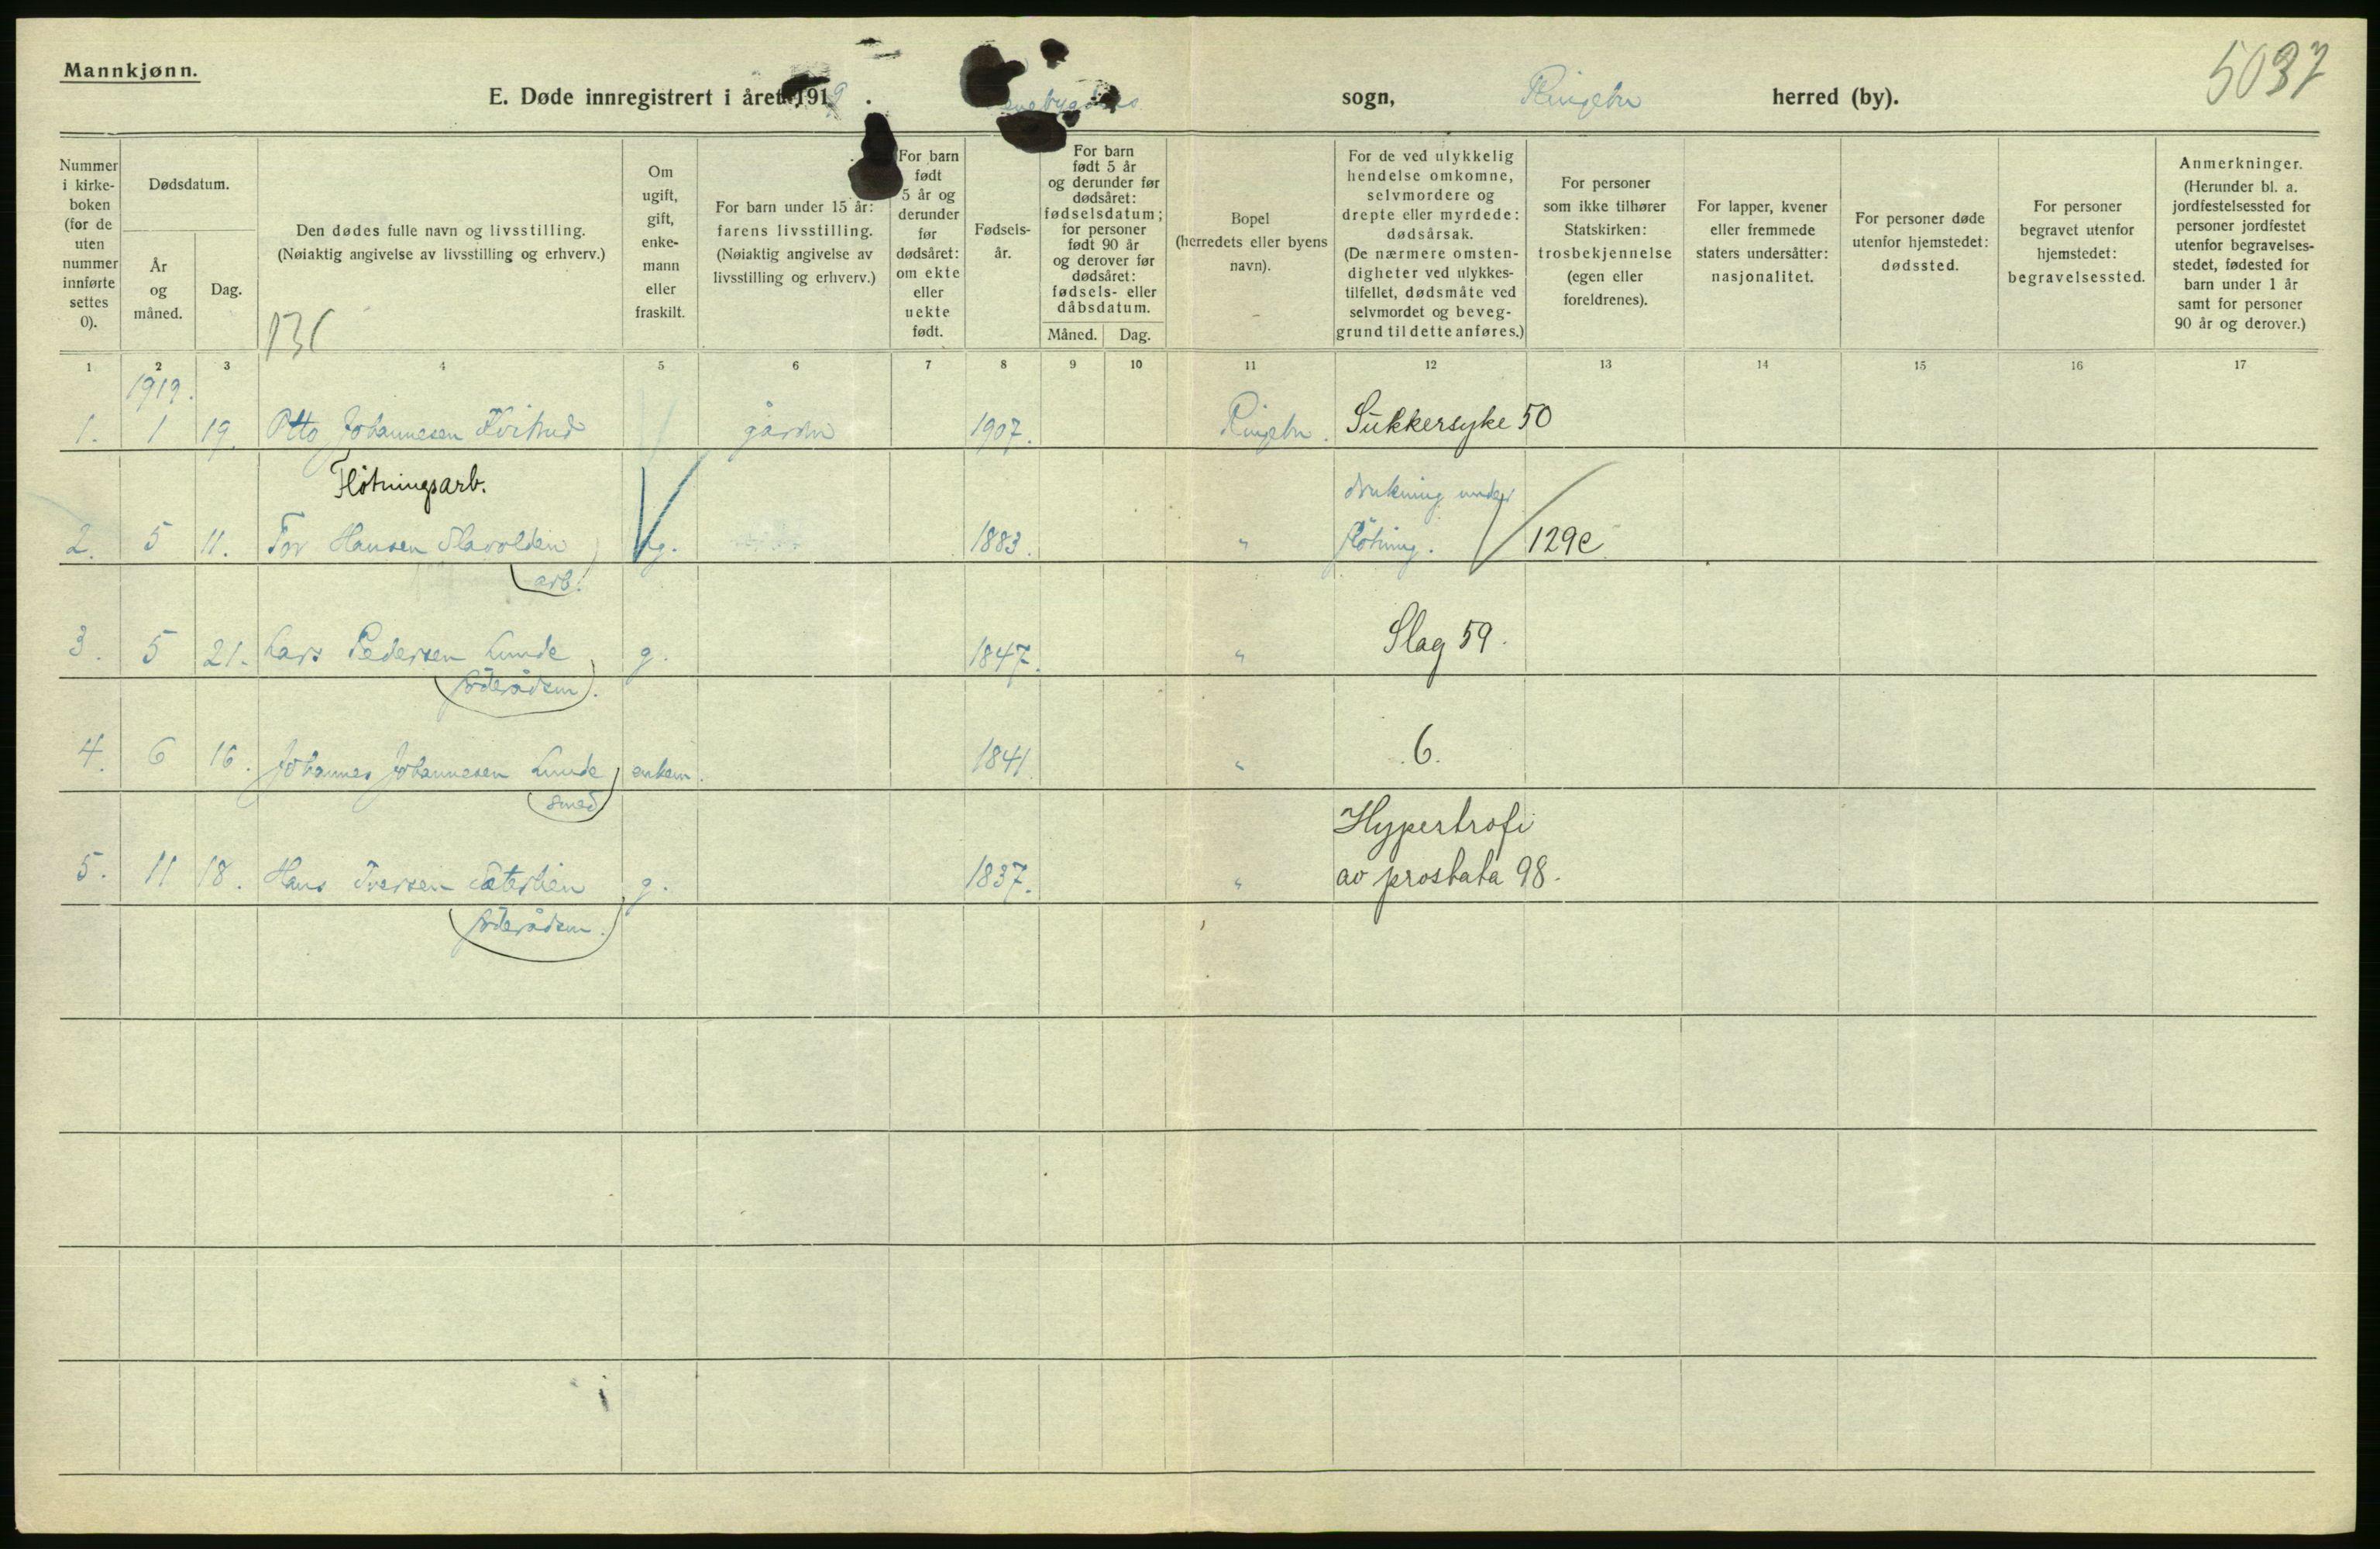 Mannkjønn.
5037
E. Døde innregistrert i året 1919. sogn, Ringebu herred (by).
Nummer i kirkeboken (for de uten nummer innførte settes 0).
Dødsdatum.
År og måned.
Dag.
Den dødes fulle navn og livsstilling.
(Nøiaktig angivelse av livsstilling og erhverv.)
Om ugift, gift, enkemann eller fraskilt.
For barn under 15 år: farens livsstilling.
(Nøiaktig angivelse av livsstilling og erhverv.)
For barn født 5 år og derunder før dødsåret: om ekte eller uekte født.
Fødselsår.
For barn født 5 år og derunder før dødsåret: fødselsdatum; for personer født 90 år og derover før dødsåret: fødsels- eller dåbsdatum.
Måned.
Dag.
Bopel (herredets eller byens navn).
For de ved ulykkelig hendelse omkomne, selvmordere og drepte eller myrdede: dødsårsak.
(De nærmere omstendigheter ved ulykkestilfellet, dødsmåte ved selvmordet og beveggrund til dette anføres.)
For personer som ikke tilhører Statskirken: trosbekjennelse (egen eller foreldrenes).
For lapper, kvener eller fremmede staters undersåtter: nasjonalitet.
For personer døde utenfor hjemstedet: dødssted.
For personer begravet utenfor hjemstedet: begravelsessted.
Anmerkninger.
(Herunder bl. a. jordfestelsessted for personer jordfestet utenfor begravelsesstedet, fødested for barn under 1 år samt for personer 90 år og derover.)
1 2 3 4 5 6 7 8 9 10 11 12 13 14 15 16 17
1919.
1. 1 19. Otto Johannesen gårdbr 1907. Ringebu. Sukkersyke 50
Fløtningsarb. drukning under
2. 5 11. Tor Hansen g. 1883. " fløtning. 129e
(arb.
3. 5 21. Lars Pedersen Lunde g. 1847. " Slag 59.
(föderådsm).
4. 6 16. Johannes Johannesen Lunde enkem. 1841. " 6.
(smed)
Hypertrofi
5. 11 18. Hans Iversen g. 1837. " av prostata 98.
(föderådsm.)